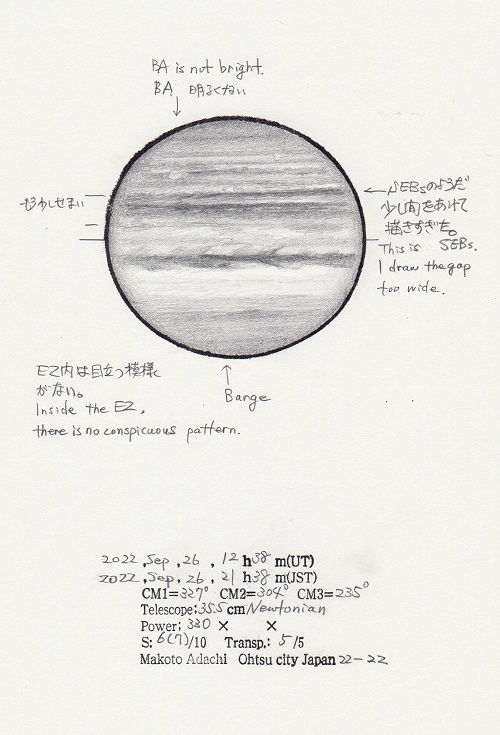 BA is not bright.
BA 明るくない
もう少しせまい
SEBsのようだ
少し間をあけて
描きすぎた。
This is SEBs.
I draw the gap
too wide.
EZ内は目立つ模様
がない。
Inside the EZ,
there is no conspicuous pattern.
Barge
2022,Sep,26,12h38m(UT)
2022,Sep,26,21h38m(JST)
CM1=327° CM2=304° CM3=235°
Telescope:355cm Newtonian
Power: 330 × ×
S: 6(7)/10 Transp.: 5/5
Makoto Adachi Ohtsu city Japan 22-22